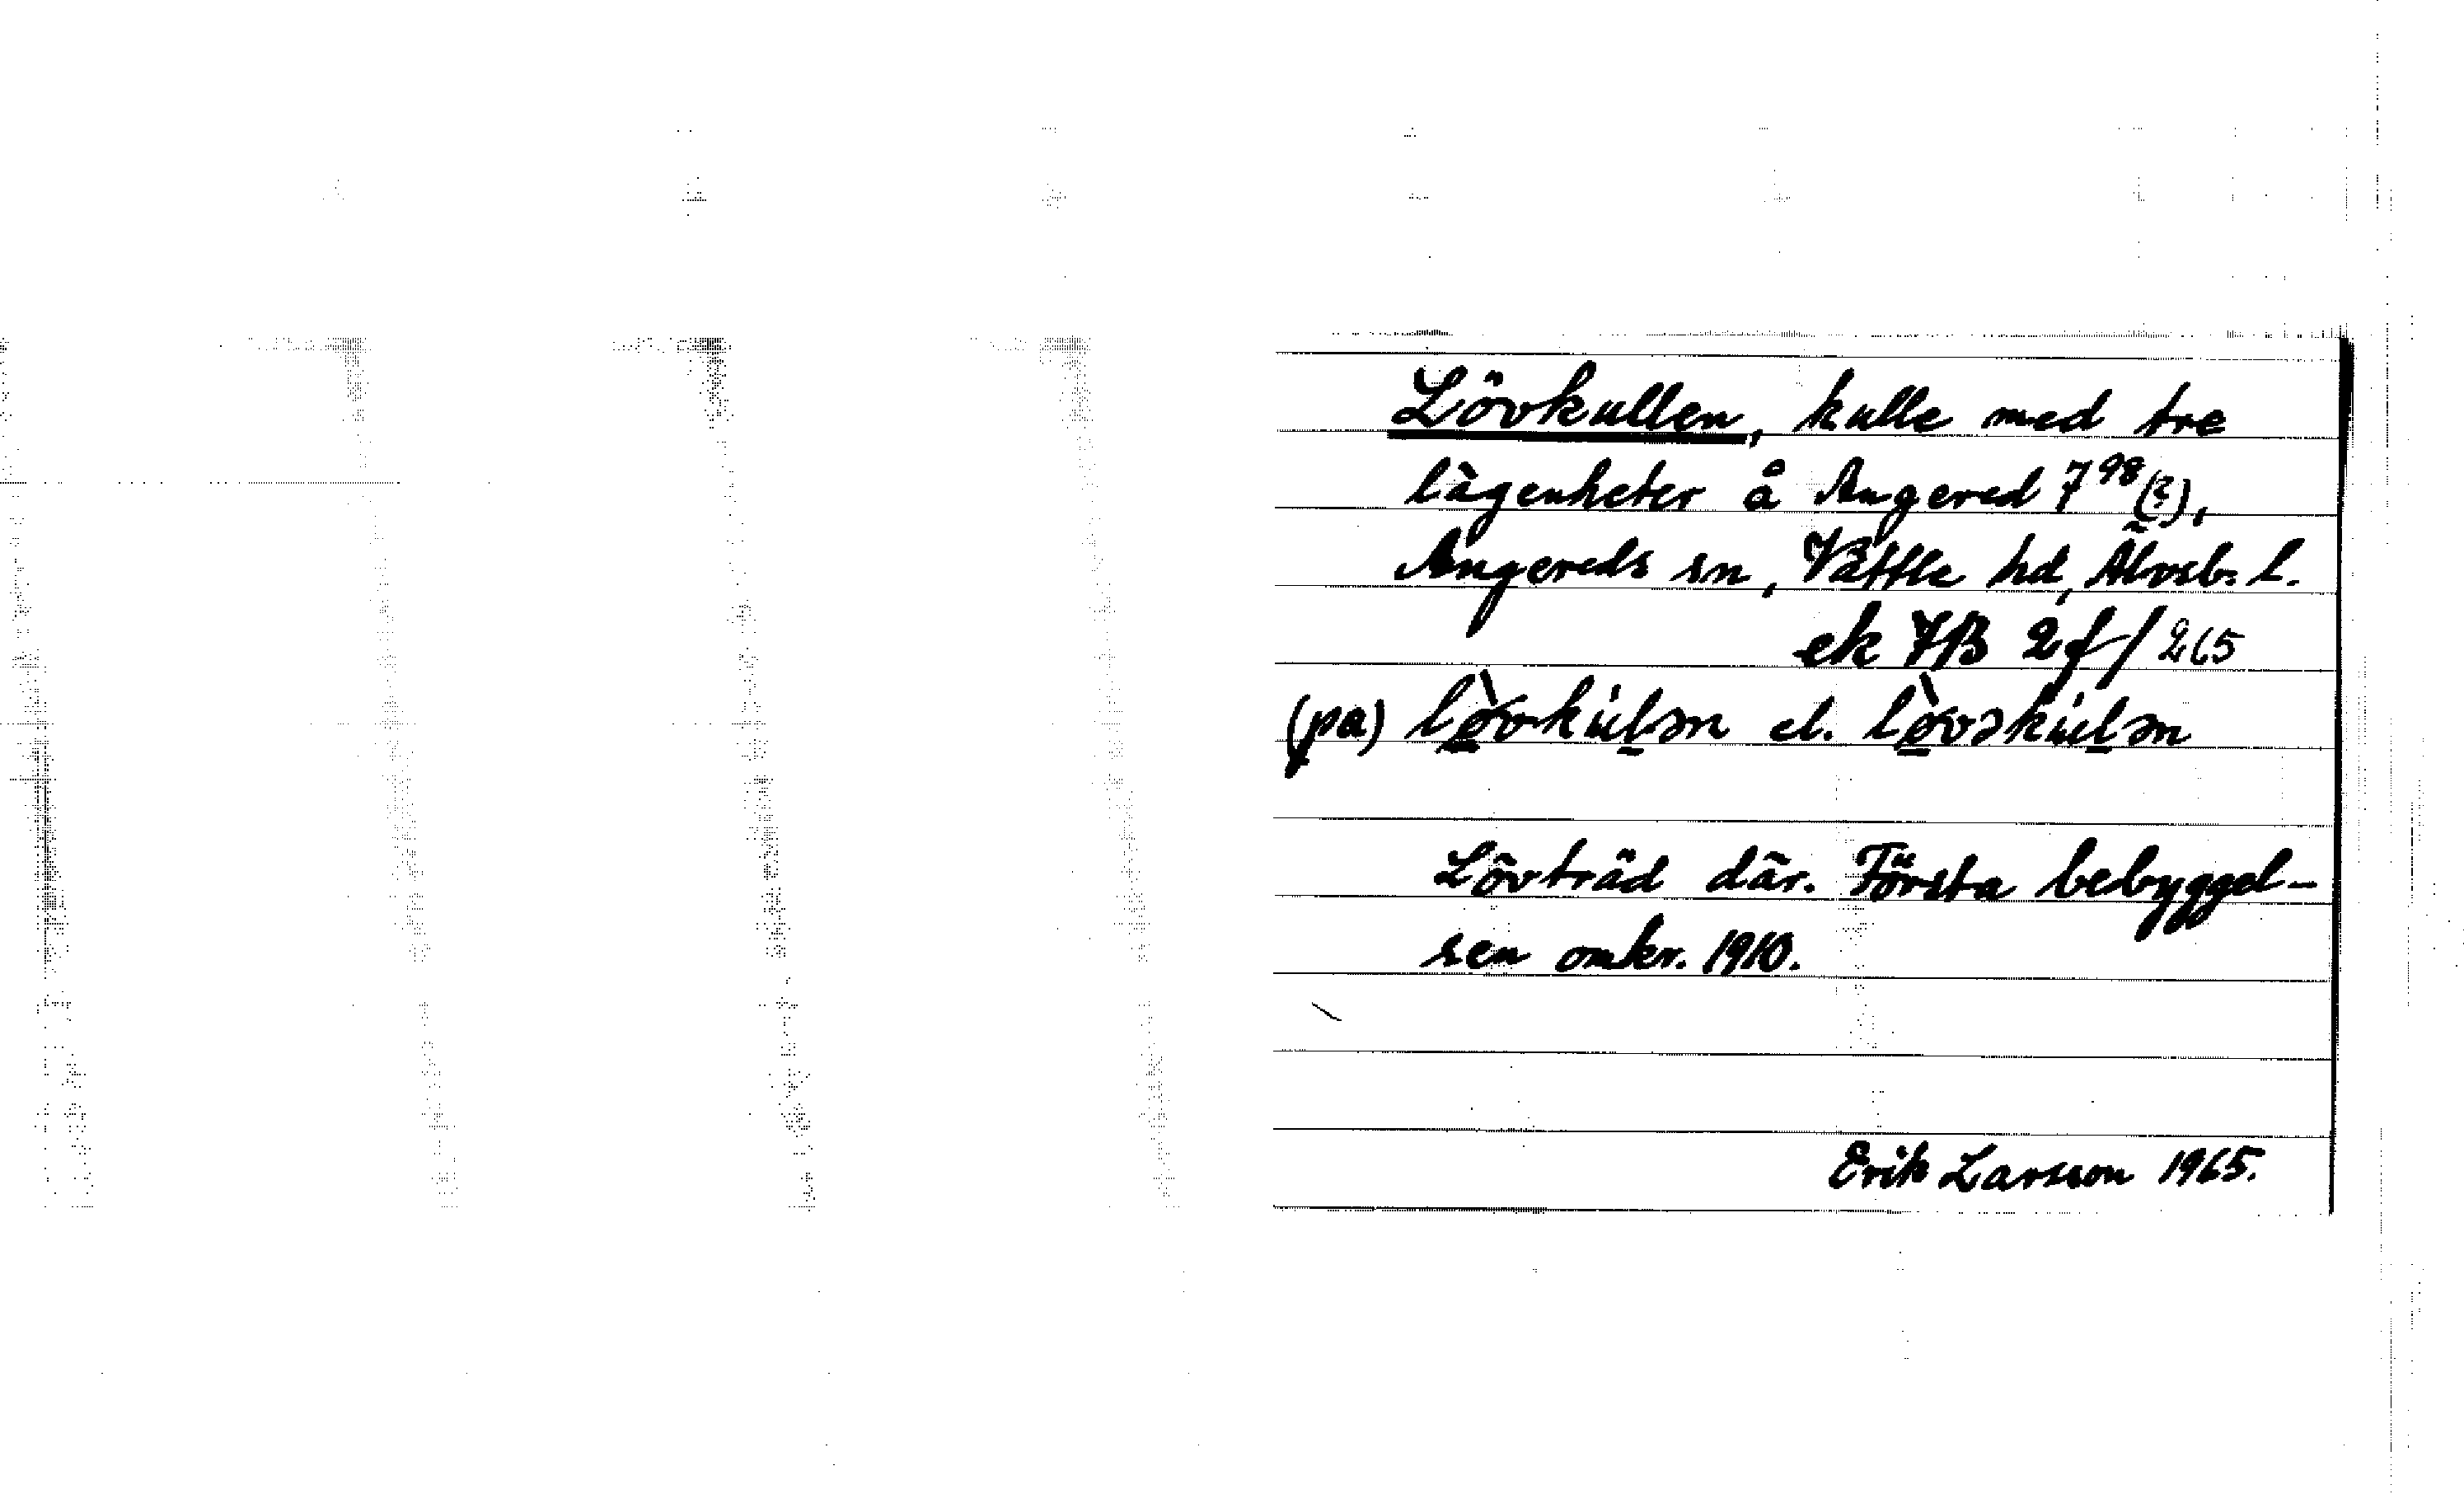 Lövkullen, kulle med tre
lägenheter å Angered 7⁹⁸(?),
Angereds sn, Vättle hd, Älvsb. l.
ek 7B 2f/265
(pa) lø̀vku̇lən el. lø̀vəku̇lən
Lövträd där. Första bebyggel-
sen omkr. 1910.
Erik Larsson 1965.